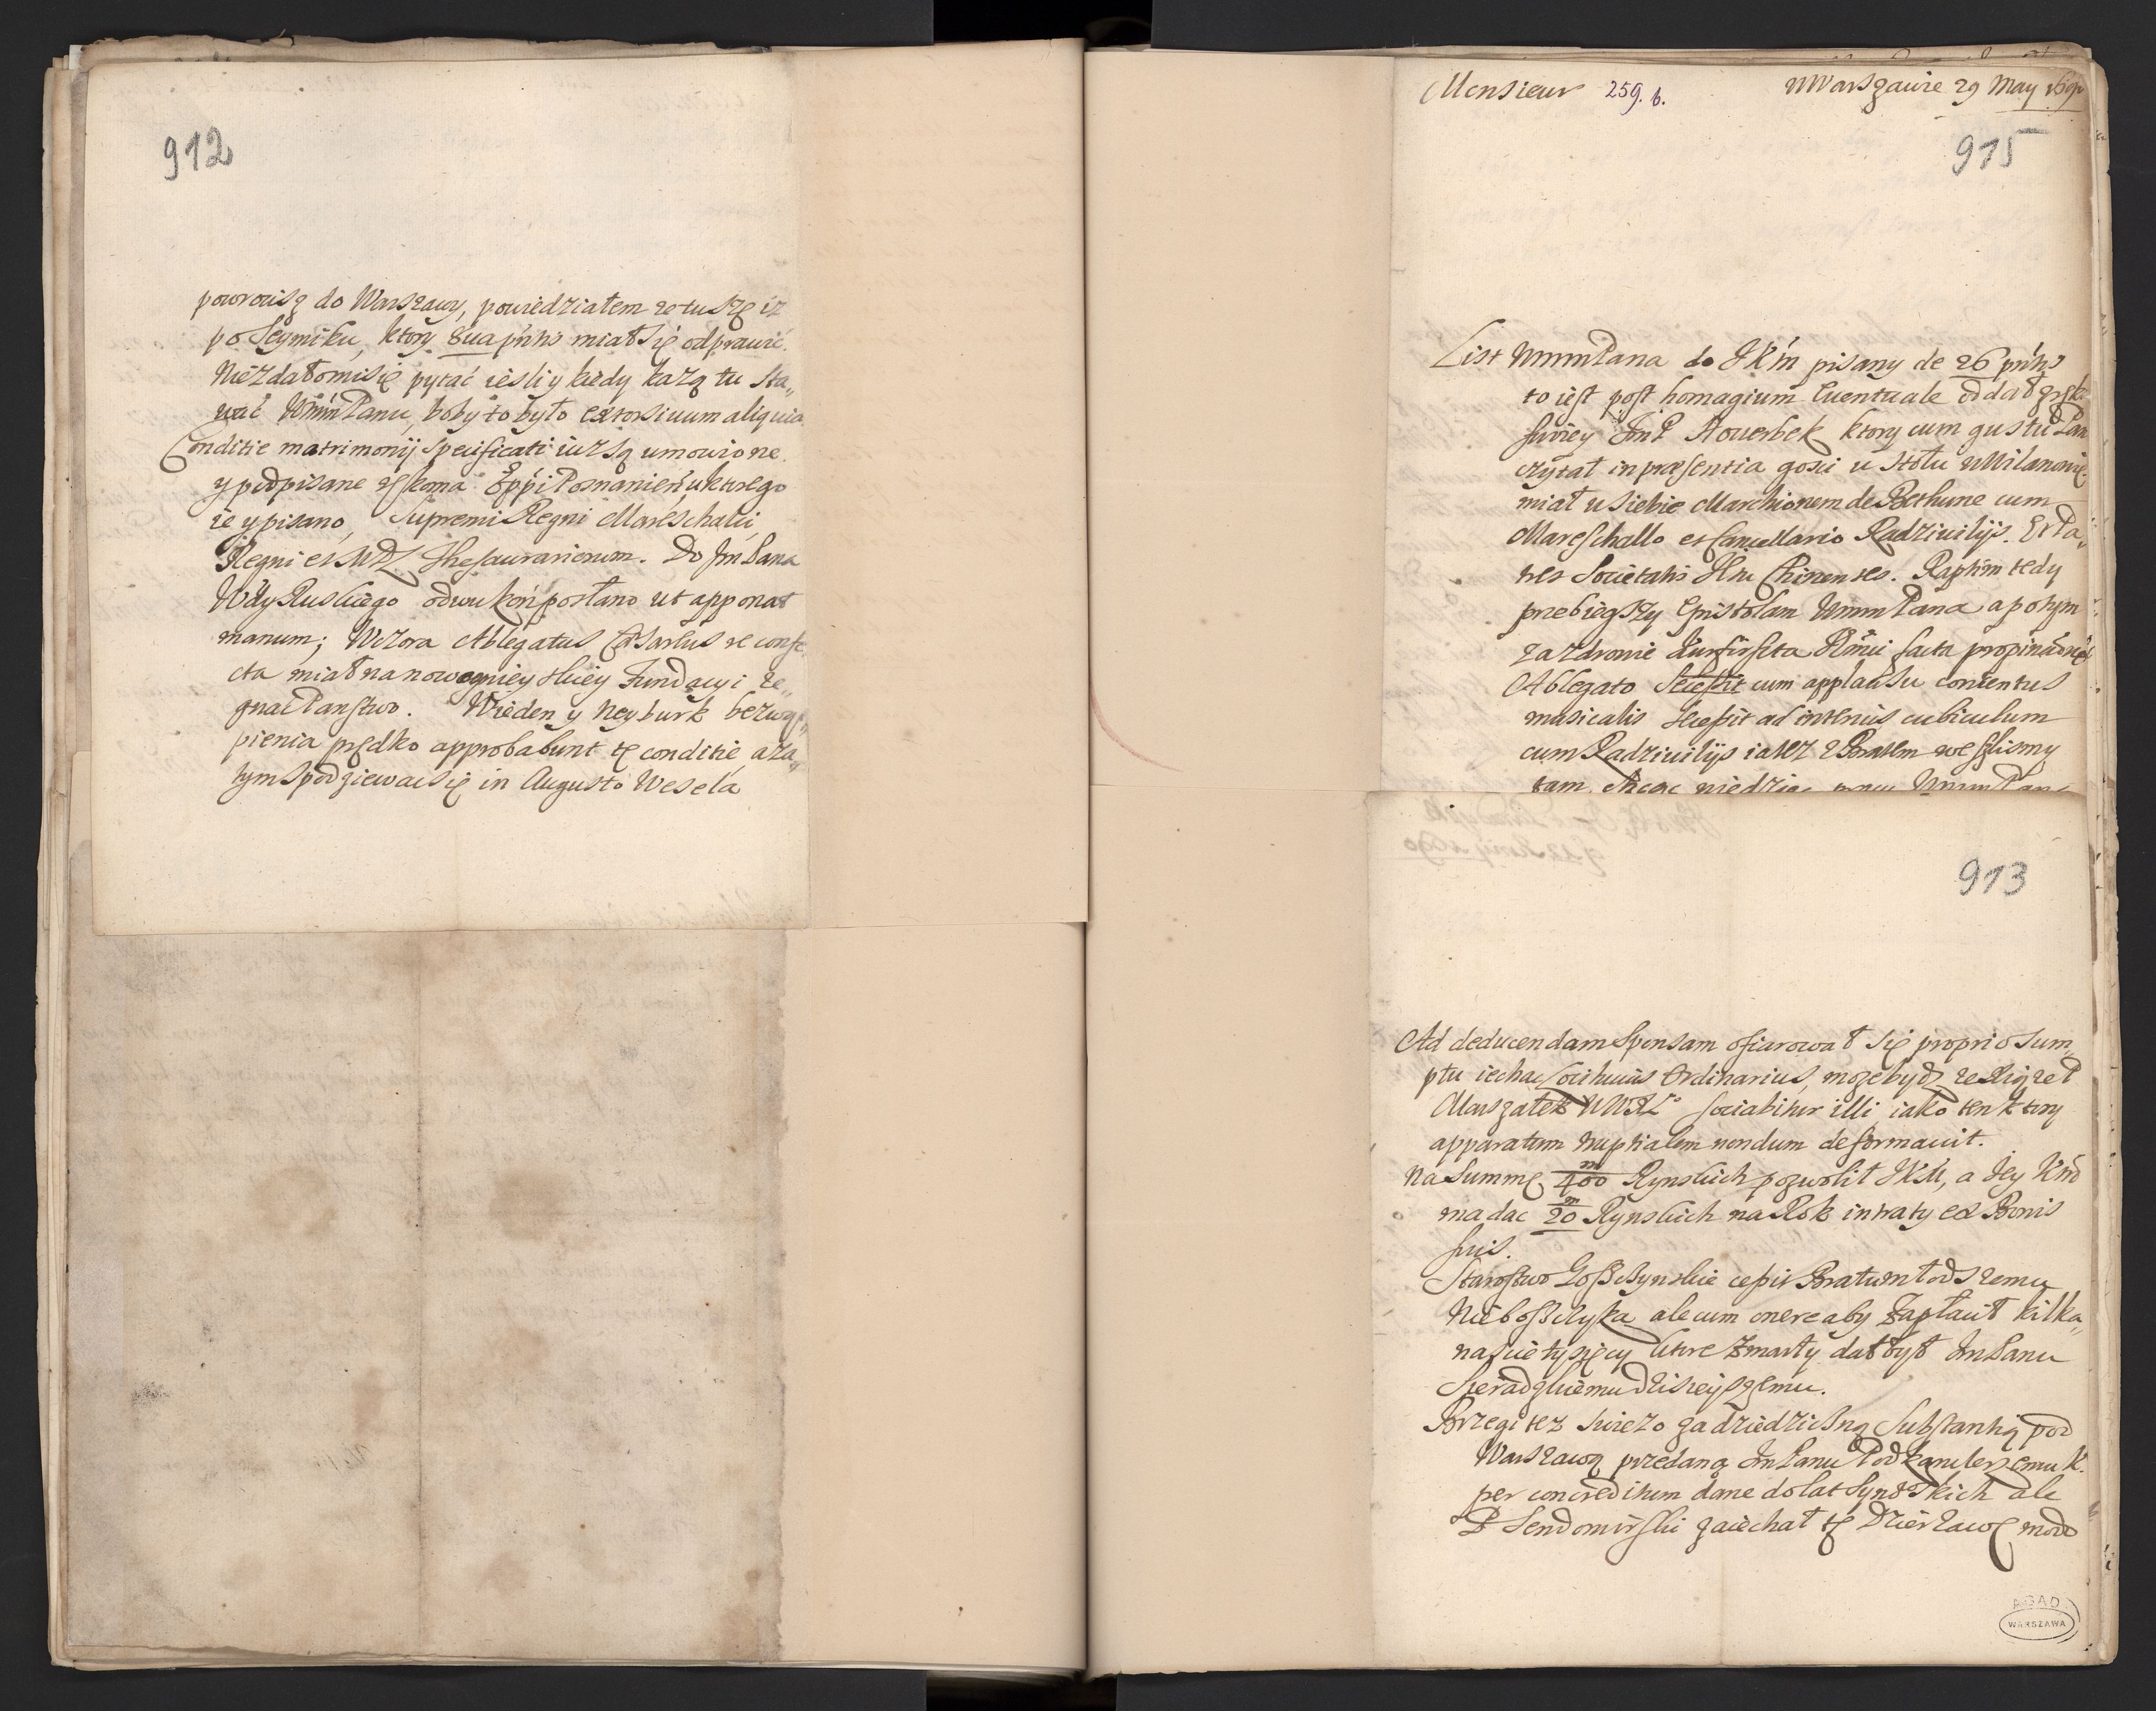 912
powrocisz do Warszawy, powiedziałem że tuszę iż
po Seymiku, ktory 8ua pńtis miał się odprawić.
Niezdało mi się pytać ieśli y kiedy każą tu sta„
wać WMMPanu, boby to było extorsiuum aliquid
Conditie matrimonij specificati iuż są umowione
y podpisane ręką Eppi Posnanień, u ktorego
ie y pisano, Supremi Regni Mareschalci,
Regni et MDL Thesaurariorum. Do Jm Pana
Wdy Ruskiego odwu koń posłano ut apponat
manum; Wczora Ablegatus Cæsareus re confe„
cta miał na nowo Fundacyi że„
gnać Panstwo. Wieden y Neyburk bez wąt„
pienia prędko approbabunt tę conditie, a za„
tym spodziewać się in Augusto Wesela
Monsieur 259. b. w Warszawie 29 May 169
915
List WMMPana do JKM pisany de 26 pńtis
to iest post homagium Euentuale oddał
JmP Houerbek ktory cum gustu Pan
czytał in præsentia gosci u stołu w Wilanowie
miał u siebie Marchionem de Bethune cum
Mareschallo et Cancellario Radziuilijs. Et Pa„
tres Societatis Chinenses. Raptim tedy
przebiegszy Epistolam WMMPana a potym
za zdrowie Kurfirszta facta propinatione
Ablegato secessit cum applausu concentus
musicalis secessit ad interius cubiculum
cum Radziuilijs iakoż z Bratem weszlismy
tam. Chcąc
913
Ad deducendam Sponsam ofiarował się proprio sum„
ptu iechać Ordinarius, może bydź że Xiążę P
Marszałek WWXL sociabitur illi iako ten ktory
apparatum nuptialem nondum deformauit.
Na Summę 400 m Rynskich pozwolił JKM, a Jey
ma dać 20 m Rynskich na Rok intraty ex Bonis
suis.
Starostwo Goszczynskie cessit Bratu młodszemu
Nieboszczyka ale cum onere aby zapłacił kilka„
nascie tysięcy ktore zmarły dał był Jm Panu
Sieradzkiemu dzisieyszemu.
Brzegi też swiezo za dziedziczną Substantią pod
Warszawą przedaną Jm Panu Podkanclerzemu K.
per concreditum dane do lat Synowskich ale
P Sendomirski zaiechał tę Dzierżawę modo
AGAD
WARSZAWA